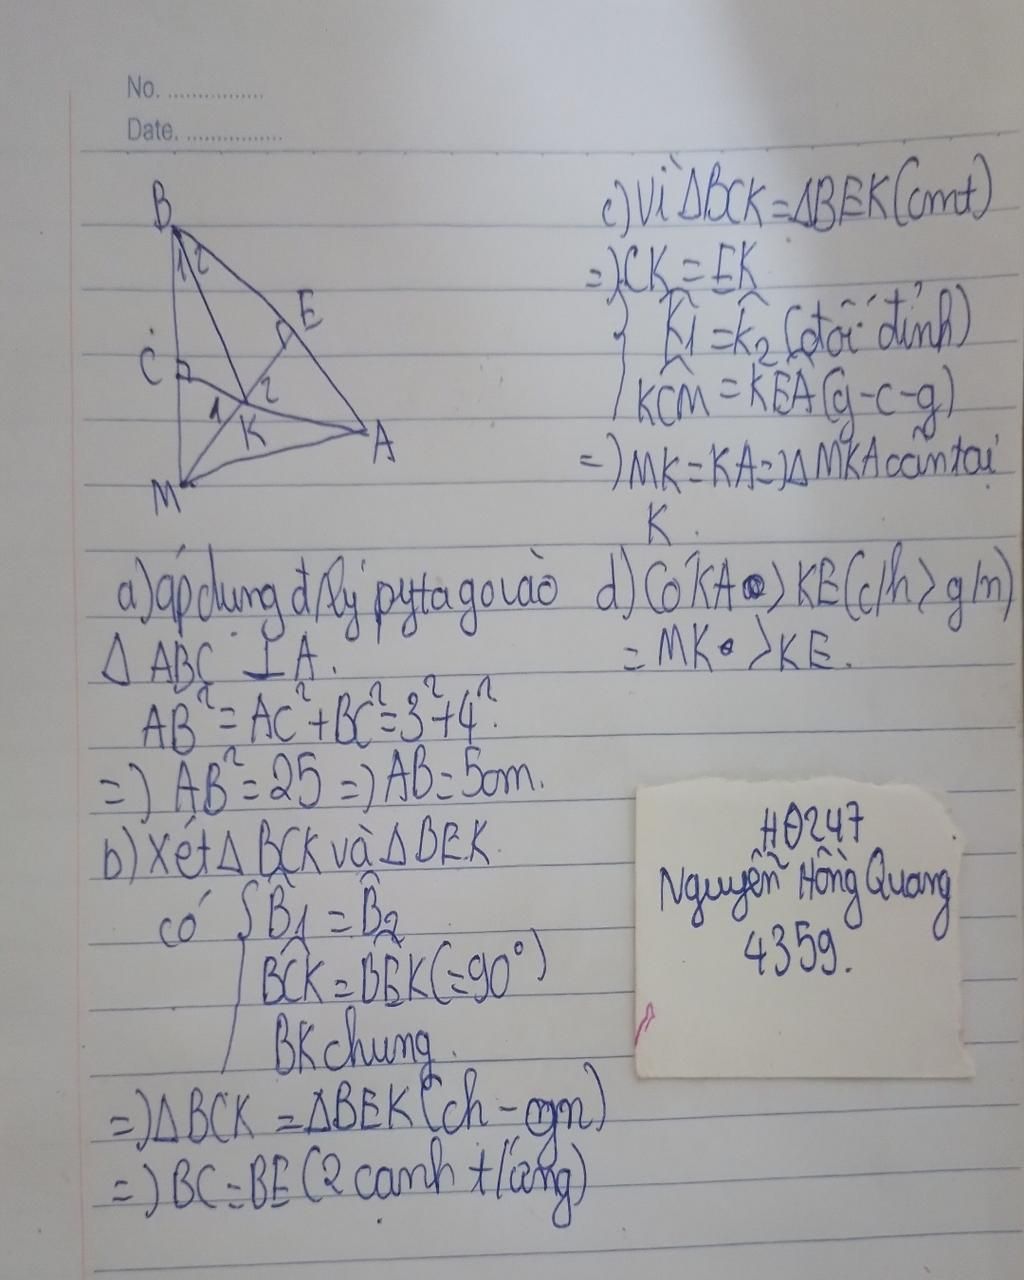 No. ................
Date. ................
B
1 2
E
C
1 2
K
A
M
a) áp dụng đ/lý pytago vào
Δ ABC ⊥ A.
AB² = AC² + BC² = 3² + 4².
=) AB² = 25 =) AB = 5cm.
b) Xét Δ BCK và Δ BEK
có { B̂1 = B̂2
BĈK = BÊK (= 90°)
BK chung.
=) Δ BCK = Δ BEK (ch - gn)
=) BC = BE (2 cạnh t/ứng)
c) Vì Δ BCK = Δ BEK (cmt)
=) CK = EK
K̂1 = K̂2 (đối đỉnh)
KĈM = KÊA (g-c-g)
=) MK = KA =) Δ MKA cân tại
K.
d) Có KA > KE (c/h > g/n)
= MK > KE.
HĐ247
Nguyễn Hồng Quang
4359.